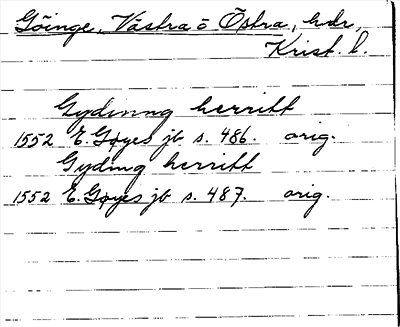 Göinge, Västra o Östra, hdr,
Krist. l.
Gydinng herritt
1552 E. Gøyes jb s. 486. orig.
Gyding herritt
1552 E. Gøyes jb s. 487. orig.